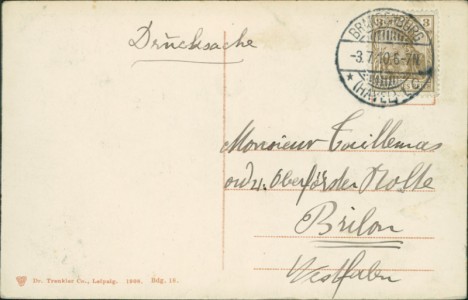 Drucksache
BRANDENBURG
3
-3.7.10.6-7N.
* (HAVEL)
Monsieur Tuillemas
Oberförster Nolte
Brilon
Westfalen
Dr. Trenkler Co., Leipzig. 1906. Bdg. 18.